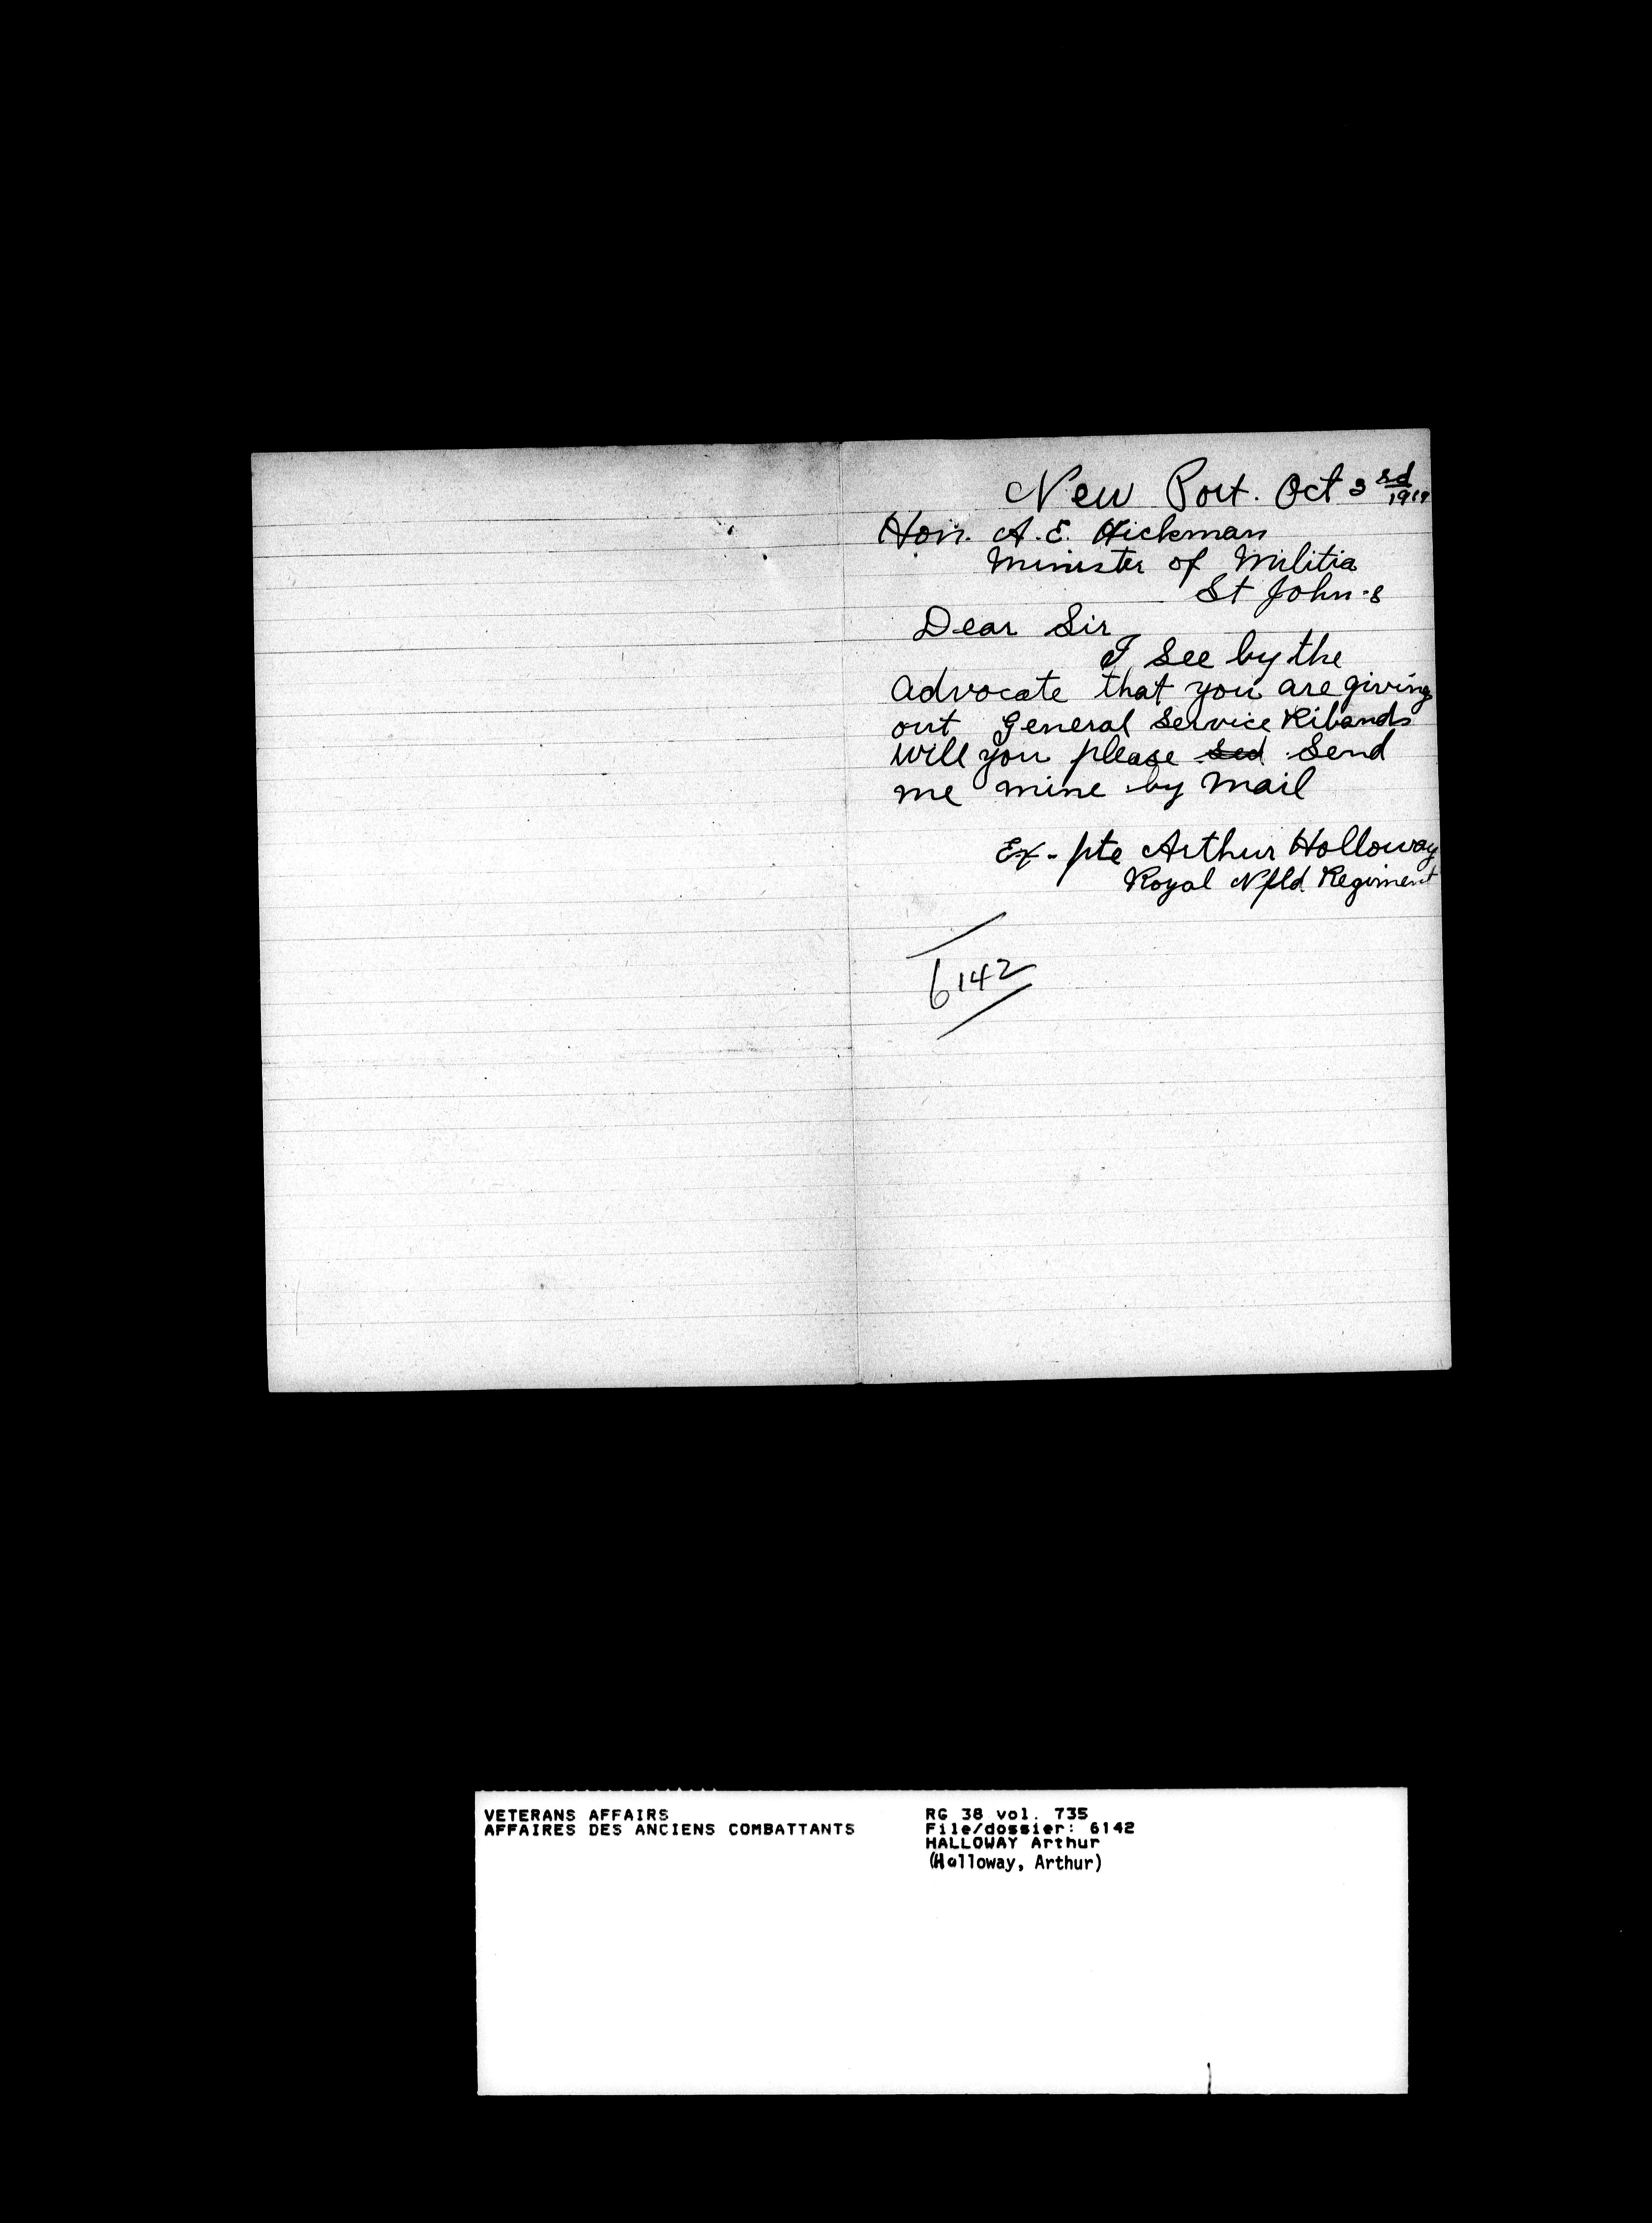 New Port. Oct 3rd 1919
Hon. A. E. Hickman
Minister of Militia
St John's
Dear Sir
I see by the
Advocate that you are giving
out General Service Ribands
Will you please sed send
me mine by mail
Ex-pte Arthur Holloway
Royal Nfld. Regiment
6142
VETERANS AFFAIRS
AFFAIRES DES ANCIENS COMBATTANTS
RG 38 vol. 735
File/dossier: 6142
HALLOWAY Arthur
(Holloway, Arthur)